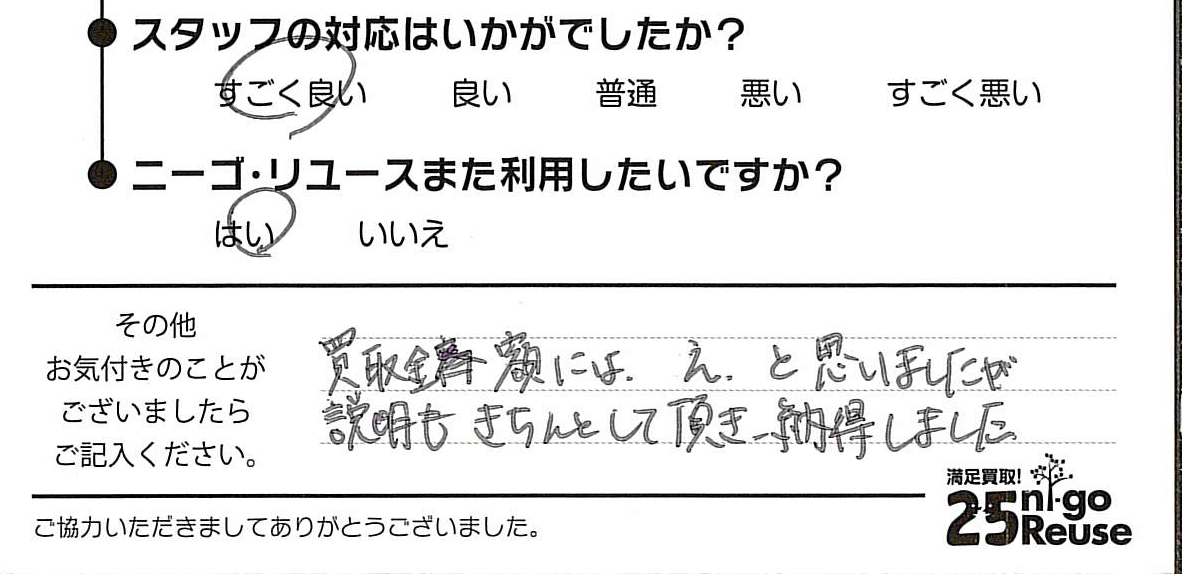 スタッフの対応はいかがでしたか？
すごく良い 良い 普通 悪い すごく悪い
ニーゴ・リユースまた利用したいですか？
はい いいえ
その他
お気付きのことが
ございましたら
ご記入ください。
買取金額には、え、と思いましたが
説明もきちんとして頂き、納得しました
満足買取！
25 ni-go
Reuse
ご協力いただきましてありがとうございました。